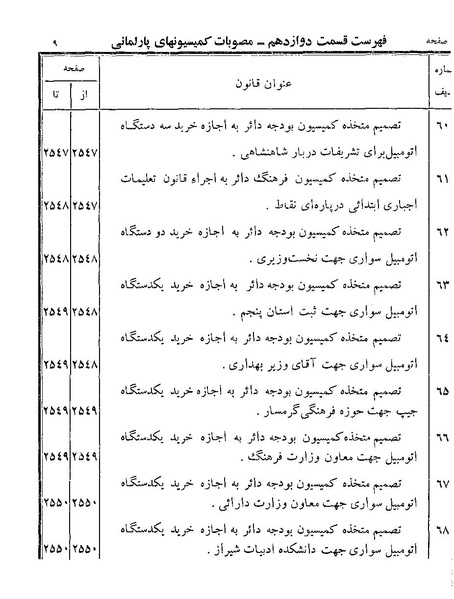 صفحه فهرست قسمت دوازدهم – مصوبات کمیسیونهای پارلمانی ۹
ماره عنوان قانون صفحه
یف از تا
۶۰ تصمیم متخذه کمیسیون بودجه دائر به اجازه خرید سه دستگاه
اتومبیل برای تشریفات دربار شاهنشاهی . ۲۵٤۷ ۲۵٤۷
۶۱ تصمیم متخذه کمیسیون فرهنگ دائر به اجراء قانون تعلیمات
اجباری ابتدائی درپاره‌ای نقاط . ۲۵٤۷ ۲۵٤۸
۶۲ تصمیم متخذه کمیسیون بودجه دائر به اجازه خرید دو دستگاه
اتومبیل سواری جهت نخست‌وزیری . ۲۵٤۸ ۲۵٤۸
۶۳ تصمیم متخذه کمیسیون بودجه دائر به اجازه خرید یکدستگاه
اتومبیل سواری جهت ثبت استان پنجم . ۲۵٤۸ ۲۵٤۹
۶٤ تصمیم متخذه کمیسیون بودجه دائر به اجازه خرید یکدستگاه
اتومبیل سواری جهت آقای وزیر بهداری . ۲۵٤۸ ۲۵٤۹
۶۵ تصمیم متخذه کمیسیون بودجه دائر به اجازه خرید یکدستگاه
جیپ جهت حوزه فرهنگی گرمسار . ۲۵٤۹ ۲۵٤۹
۶۶ تصمیم متخذه کمیسیون بودجه دائر به اجازه خرید یکدستگاه
اتومبیل جهت معاون وزارت فرهنگ . ۲۵٤۹ ۲۵٤۹
۶۷ تصمیم متخذه کمیسیون بودجه دائر به اجازه خرید یکدستگاه
اتومبیل سواری جهت معاون وزارت دارائی . ۲۵۵۰ ۲۵۵۰
۶۸ تصمیم متخذه کمیسیون بودجه دائر به اجازه خرید یکدستگاه
اتومبیل سواری جهت دانشکده ادبیات شیراز . ۲۵۵۰ ۲۵۵۰